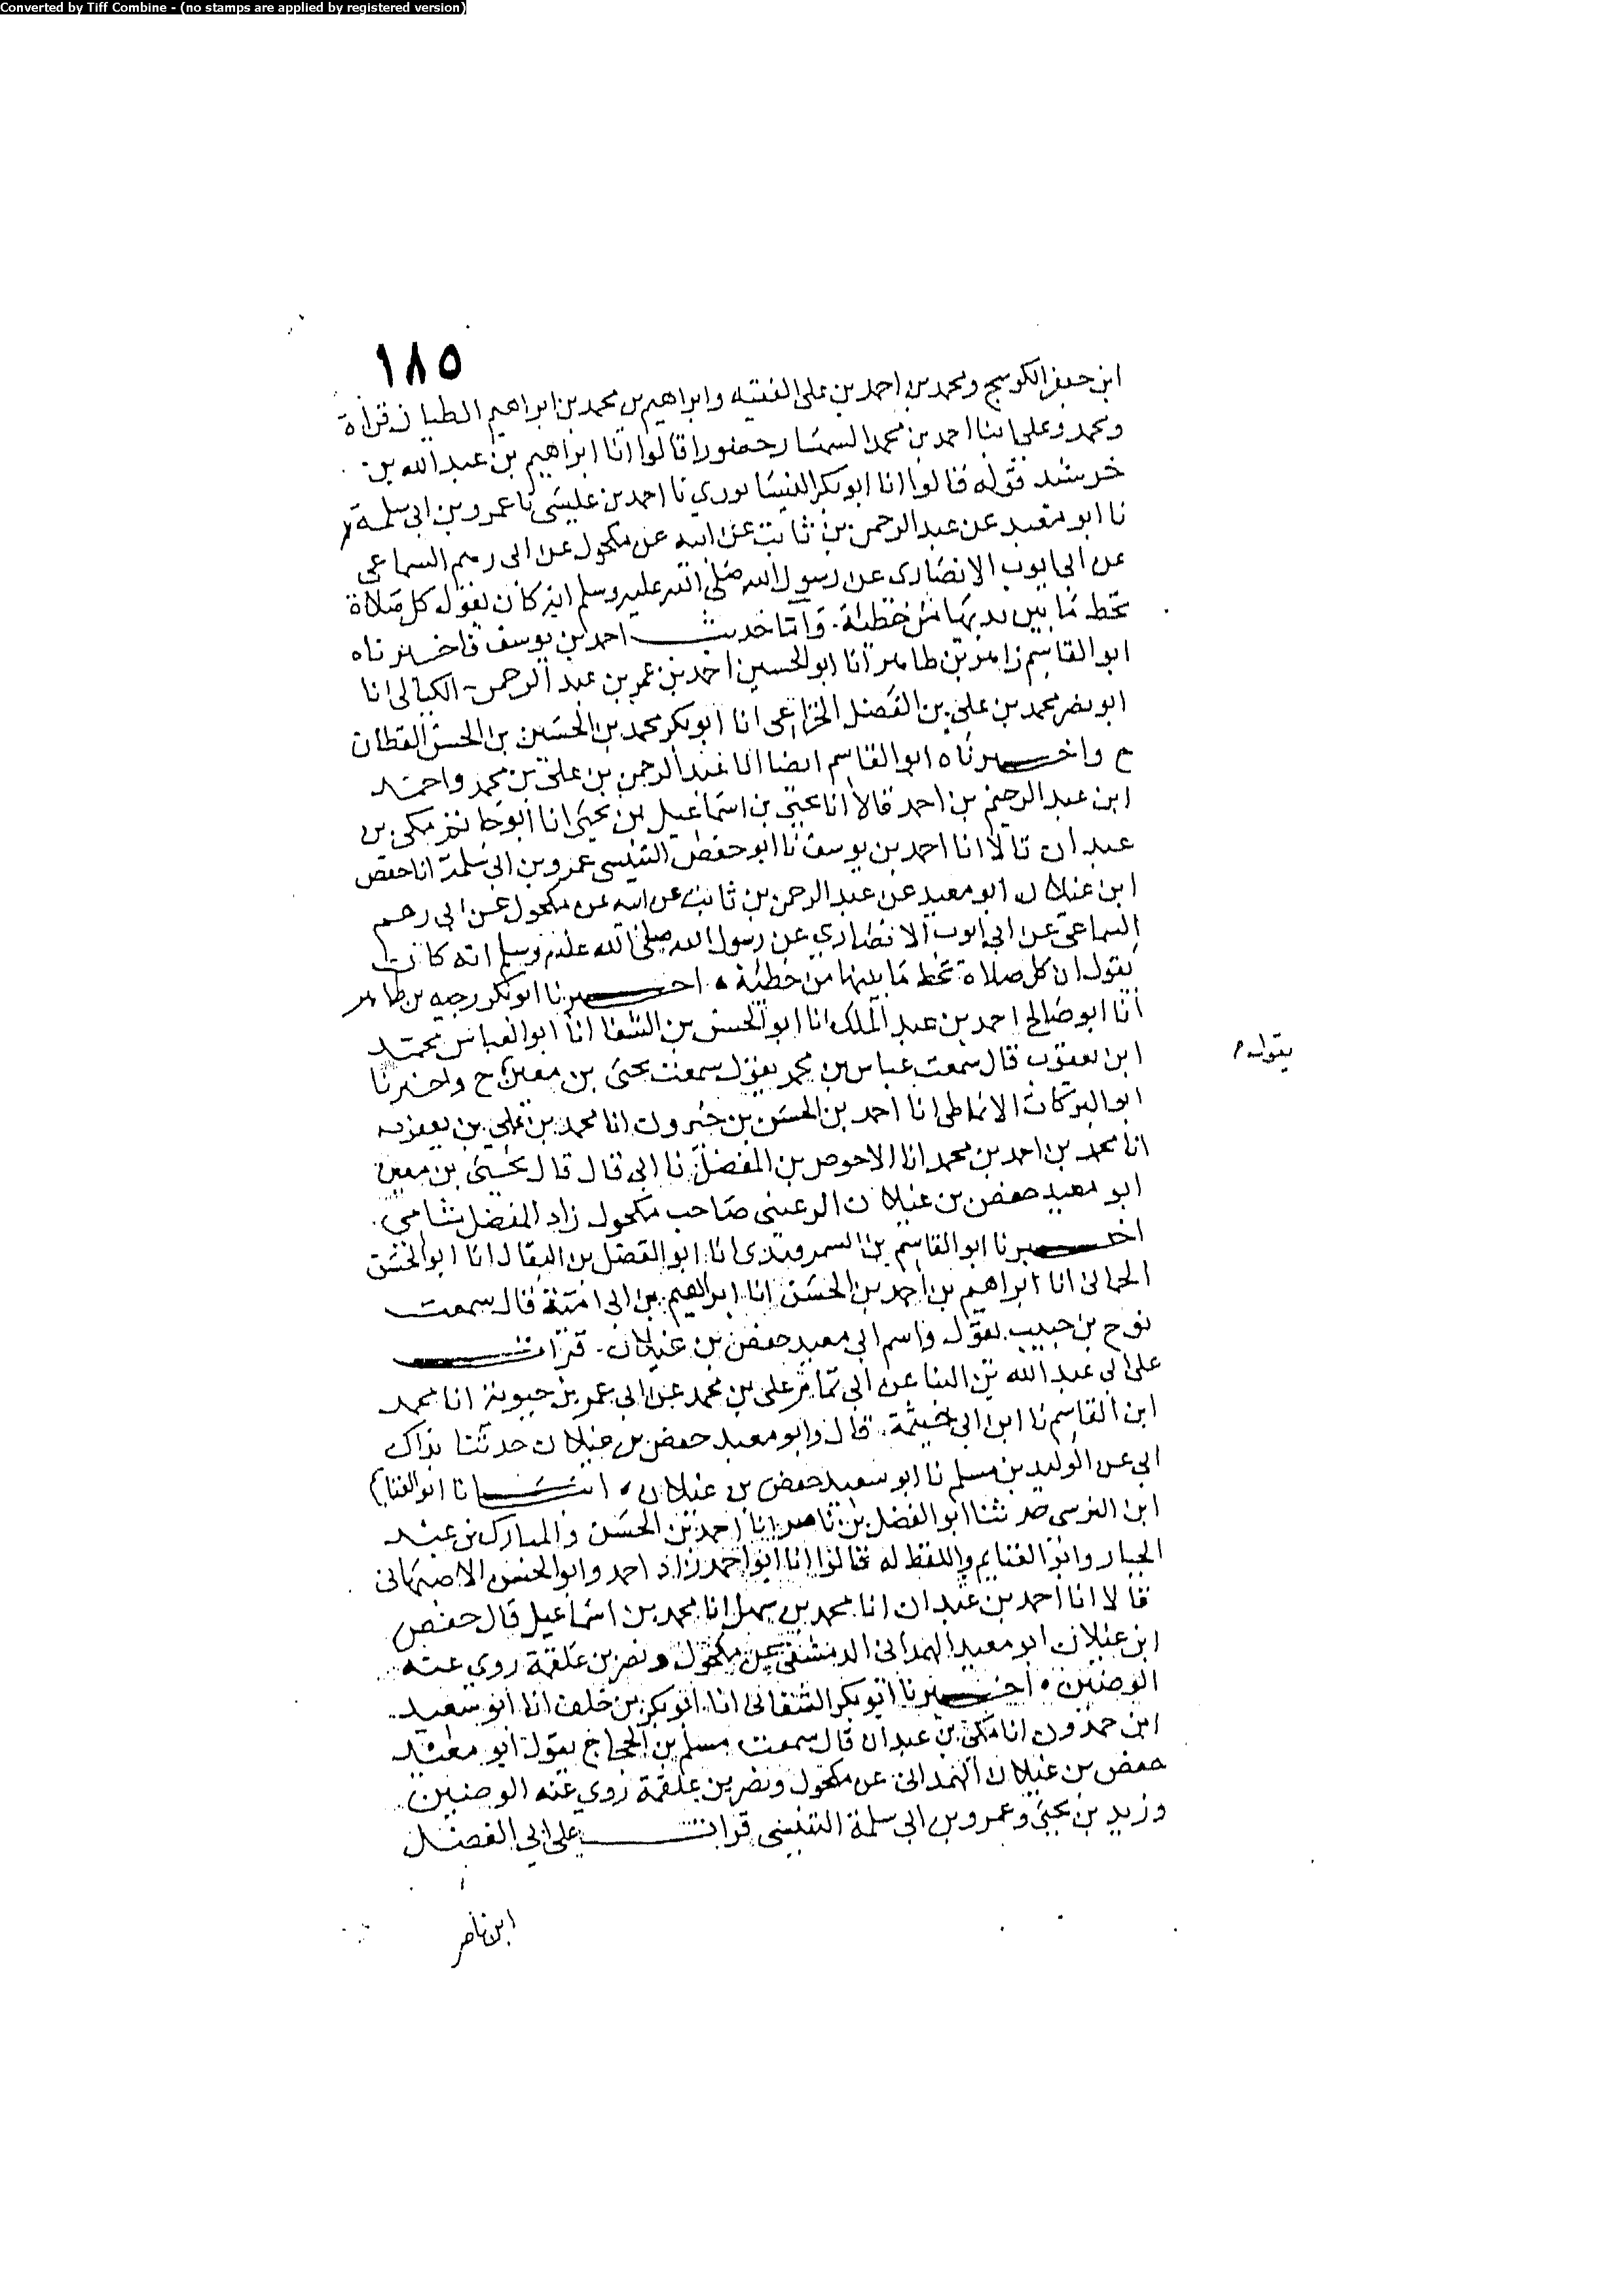 Converted by Tiff Combine - (no stamps are applied by registered version)
١٨٥
ابن جعفر الكوسج ومحمد بن احمد بن على الفقيه وابراهيم بن محمد بن ابراهيم الطيان قراة
ومحمد وعلي ابنا احمد بن محمد السمسار حضورا قالوا انا ابراهيم بن عبد الله بن
خرشيد قوله قالوا انا ابو بكر النيسابوري نا احمد بن عيسى نا عمرو بن ابي سلمة
نا ابو معيد عن عبد الرحمن بن ثابت عن ابيه عن مكحول عن ابى رهم السماعي
عن ابى ايوب الانصارى عن رسول الله صلى الله عليه وسلم انه كان يقول كل صلاة
تحط ما بين يديها من خطئة. واما حديث احمد بن يوسف فاخبرناه
ابو القاسم زاهر بن طاهر انا ابو الحسين احمد بن عمر بن عبد الرحمن الكيالى انا
ابو نصر محمد بن علي بن الفضل الخزاعى انا ابو بكر محمد بن الحسين بن الحسن القطان
ح واخبرناه ابو القاسم ايضا انا عبد الرحمن بن علي بن محمد واحمد
ابن عبد الرحيم بن احمد قالا انا يحيى بن اسماعيل بن يحيى انا ابو حاتم مكى بن
عبدان قالا انا احمد بن يوسف نا ابو حفص التنيسى عمرو بن ابي سلمة انا حفص
ابن غيلان ابو معيد عن عبد الرحمن بن ثابت عن ابيه عن مكحول عن ابى رهم
السماعى عن ابي ايوب الانصاري عن رسول الله صلى الله عليه وسلم انه كان
يقول ان كل صلاة تحط ما بينها من خطئة ٥ اخبرنا ابو بكر وجيه بن طاهر
انا ابو صالح احمد بن عبد الملك انا ابو الحسن بن السقا انا ابو العباس محمد
ابن يعقوب قال سمعت عباس بن محمد يقول سمعت يحيى بن معين ح واخبرنا
يقول
ابو البركات الانماطى انا احمد بن الحسن بن خيرون انا محمد بن علي بن يعقوب
انا محمد بن احمد بن محمد انا الاحوص بن المفضل نا ابى قال قال يحيى بن معين
ابو معيد حفص بن غيلان الرعينى صاحب مكحول زاد المفضل شامي.
اخبرنا ابو القاسم بن السمرقندى انا ابو الفضل بن البقال انا ابو الحسن
الحمامى انا ابراهيم بن احمد بن الحسن انا ابراهيم بن ابى امية قال سمعت
نوح بن حبيب يقول واسم ابى معيد حفص بن غيلان. قرات
على ابى عبد الله بن البنا عن ابى تمام على بن محمد عن ابي عمر بن حيوية انا محمد
ابن القاسم نا ابن ابى خيثمة. قال وابو معيد حفص بن غيلان حدثنا بذاك
ابى عن الوليد بن مسلم نا ابو سعيد حفص بن غيلان ٥ انبانا ابو الغنايم
ابن النرسى حدثنا ابو الفضل بن ناصر انا احمد بن الحسن والمبارك بن عبد
الجبار وابو الغنايم واللفظ له قالوا انا ابو احمد زاد احمد وابو الحسن الاصبهانى
قالا انا احمد بن عبدان انا محمد بن سهل انا محمد بن اسماعيل قال حفص
ابن غيلان ابو معيد الهمدانى الدمشقى عن مكحول ونصر بن علقمة روى عنه
الوضين ٥ اخبرنا ابو بكر الشقانى انا ابو بكر بن خلف انا ابو سعيد
ابن حمدون انا مكى بن عبدان قال سمعت مسلم بن الحجاج يقول ابو معيد
حفص بن غيلان الهمدانى عن مكحول ونصر بن علقمة روى عنه الوضين
وزيد بن يحيى وعمرو بن ابي سلمة التنيسى قرات على ابي الفضل
ابن ناصر